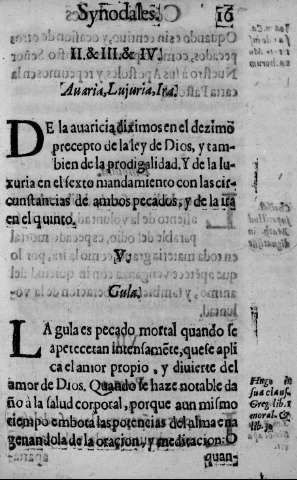 Synodales. 16
II. & III. & IV.
Auaria, Lujuria, Ira.
DE la auaricia diximos en el dezimo
precepto de la ley de Dios, y tam-
bien de la prodigalidad. Y de la lu-
xuria en el sexto mandamiento con las cir-
cunstancias de ambos pecados, y de la ira
en el quinto.
V.
Gula.
LA gula es pecado mortal quando se
apetecetan intensamẽte, que se apli
ca el amor propio, y diuierte del
amor de Dios. Quando se haze notable da
ño à la salud corporal, porque aun mismo
tiempo embota las potencias del alma ena
genandola de la oracion, y meditacion: ò
quan-
Hugo
in
sua claus.
Greg. lib.
moral. &
lib.